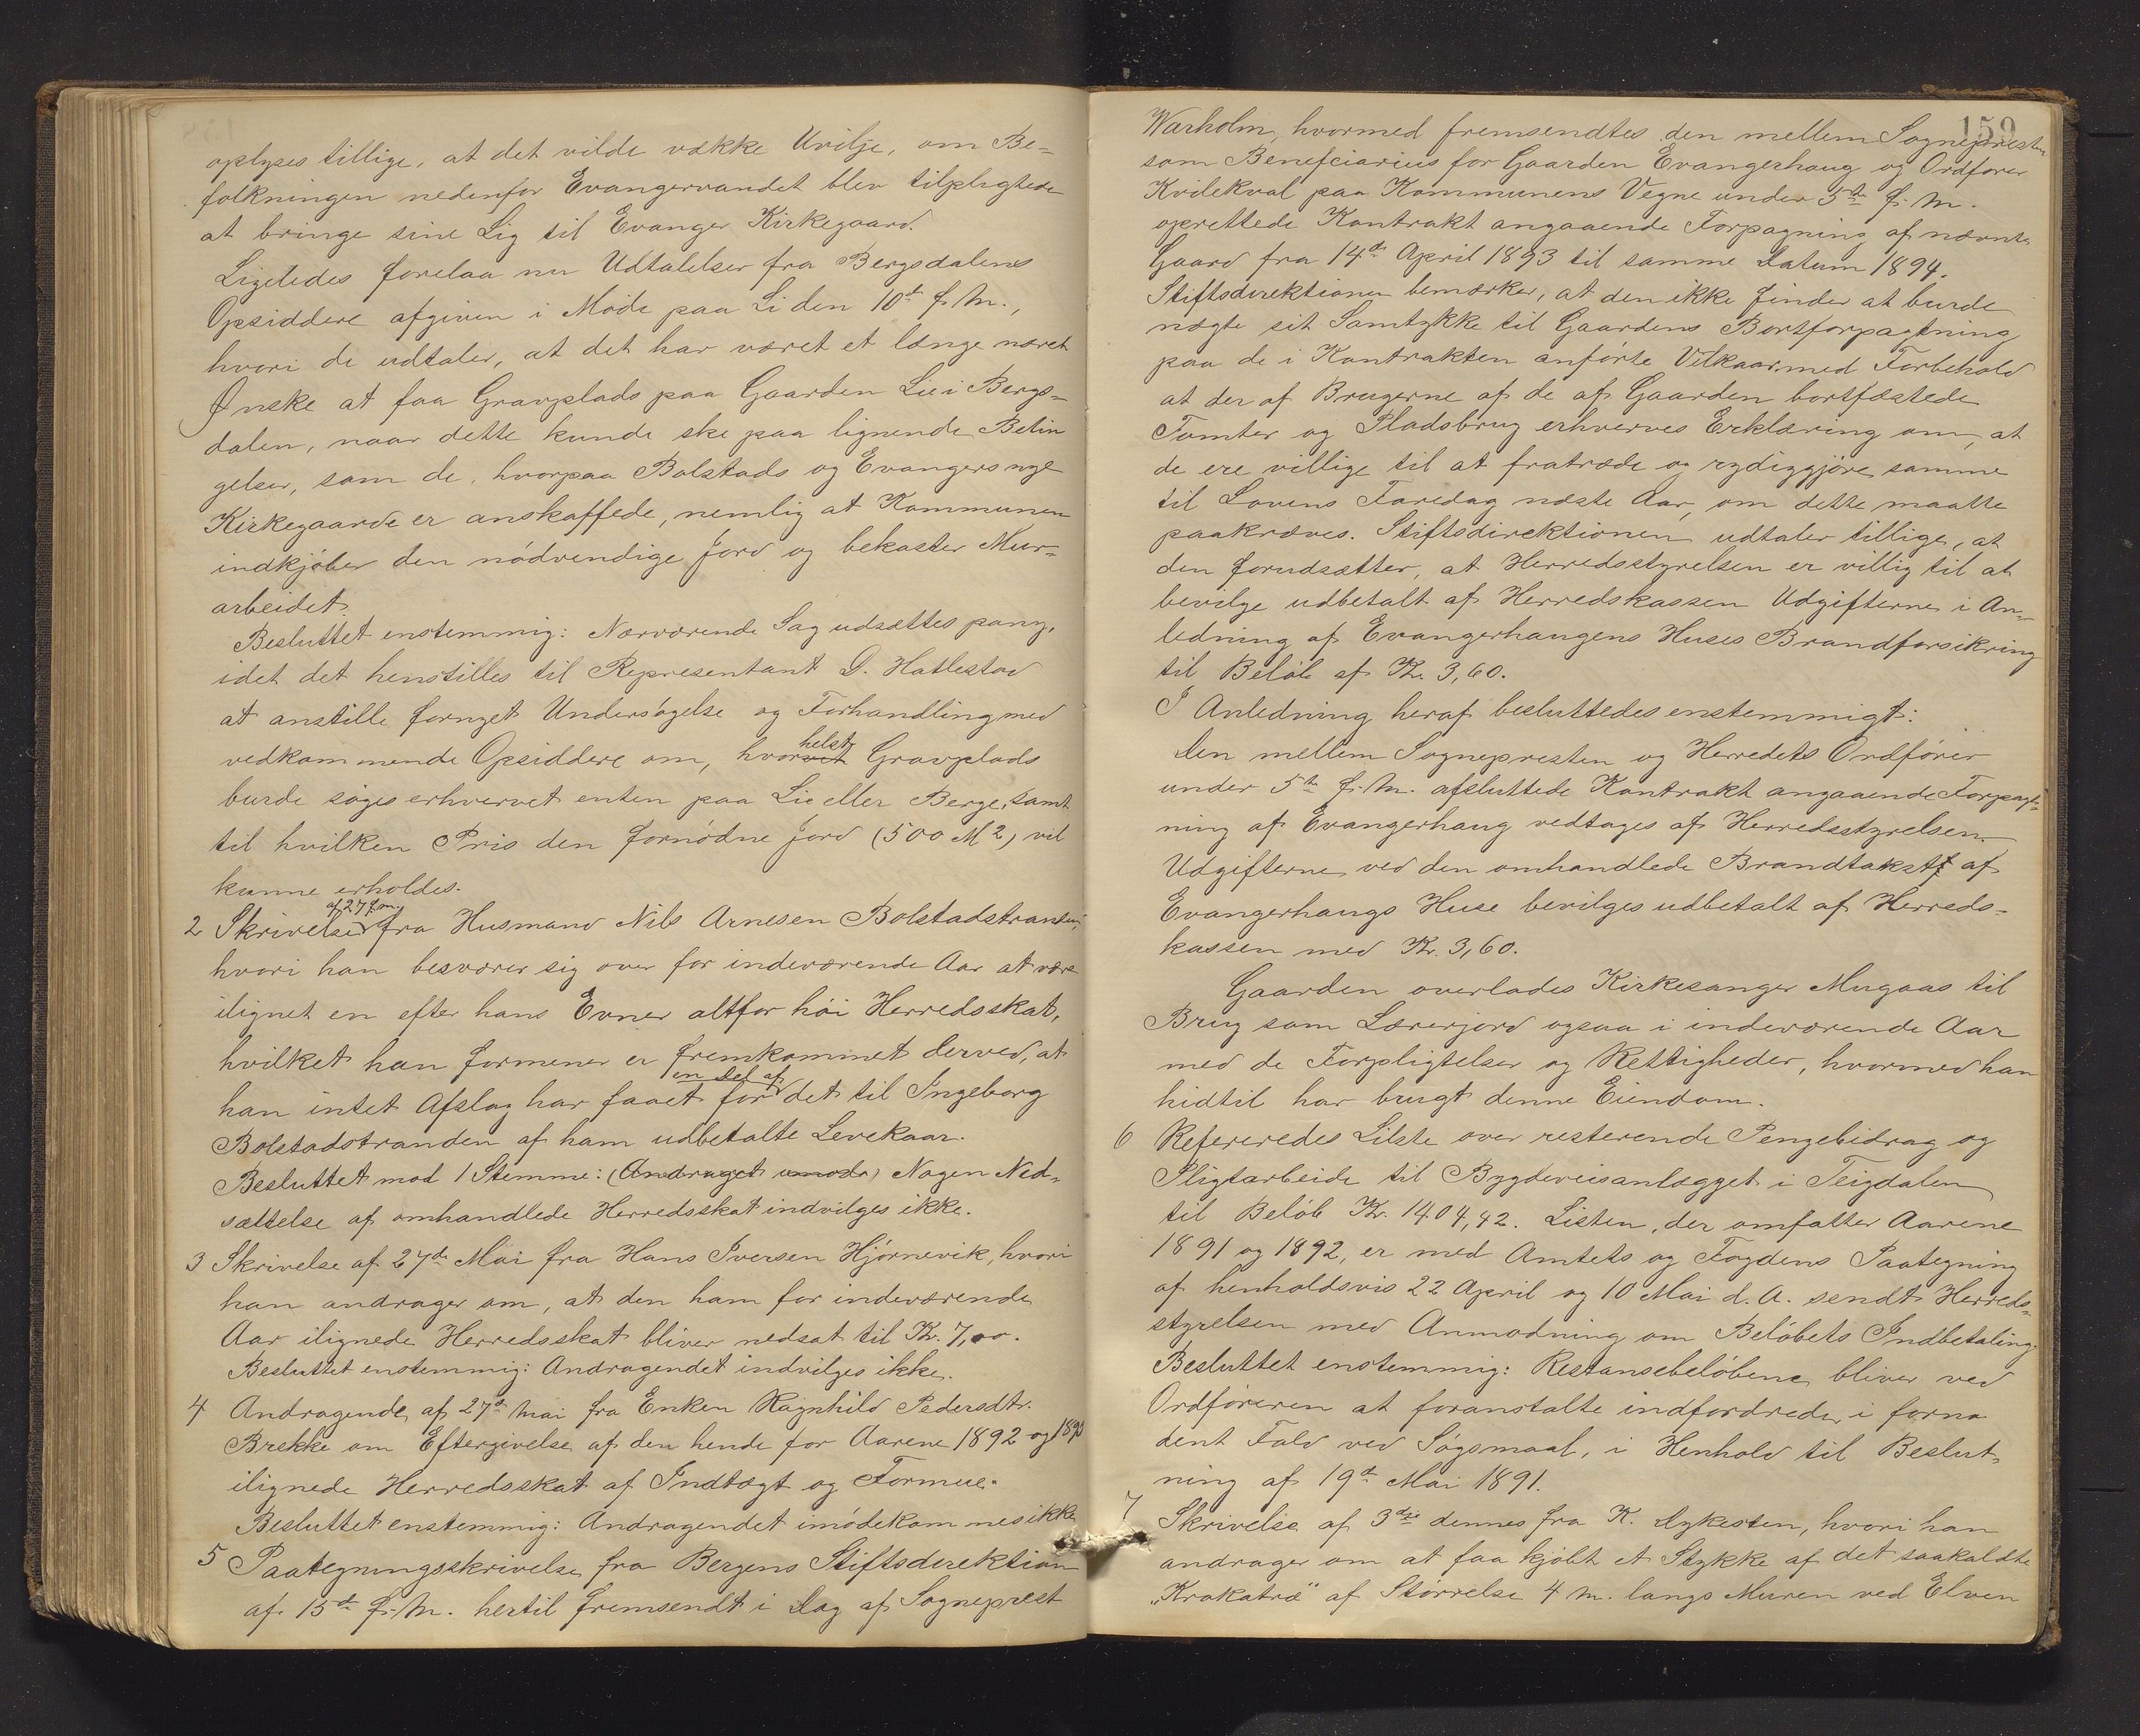 oplyses tillige, at det vilde vække Uvilje, om Be=
folkningen nedenfor Evangervandet blev tilpligtede
at bringe sine Lig til Evanger Kirkegaard.
Ligeledes forelaa nu Udtalelser fra Bergsdalens
Opsiddere afgiven i Møde paa Li den 10de f. M.,
hvori de udtaler, at det har været et længe næret
Ønske at faa Gravplads paa Gaarden Lie i Bergs=
dalen, naar dette kunde ske paa lignende Betin
gelser, som de, hvorpaa Bolstads og Evangers nye
Kirkegaarde er anskaffede, nemlig at Kommunen
indkjøber den nødvendige Jord og bekoster Mur=
arbeidet.
Besluttet enstemmig: Nærværende Sag udsættes paany,
idet det henstilles til Representant D. Hatlestad
at anstille fornyet Undersøgelse og Forhandling med
vedkommende Opsiddere om, hvorvet helst Gravplads
burde søges erhvervet enten paa Lie eller Berge, samt
til hvilken Pris den fornødne Jord (500 M2) vil
kunne erholdes.
2 Skrivelse af 27 f. m. fra Husmand Nils Arnesen Bolstadstranden,
hvori han besværer sig over for indeværende Aar at være
ilignet en efter hans Evner altfor høi Herredsskat,
hvilket han formener er fremkommet derved, at
han intet Afslag har faaet for en Del af det til Ingeborg
Bolstadstranden af ham udbetalte Levekaar.
Besluttet mod 1 Stemme: (Andraget imøde) Nogen Ned=
sættelse af omhandlede Herredsskat indvilges ikke.
3 Skrivelse af 27de Mai fra Hans Iversen Hjørnevik, hvori
han andrager om, at den ham for indeværende
Aar ilignede Herredsskat bliver nedsat til Kr. 7,00.
Besluttet enstemmig: Andragendet indvilges ikke.
4 Andragende af 27de Mai fra Enken Ragnhild Pedersdtr.
Brekke om Eftergivelse af den hende for Aarene 1892 og 1893
ilignede Herredsskat af Indtægt og Formue.
Besluttet enstemmig: Andragendet imødekommes ikke
5 Paategningsskrivelse fra Bergens Stiftsdirektion
af 15de f. M. hertil fremsendt i Dag af Sogneprest
159
Warholm, hvormed fremsendtes den mellem Sognepresten
som Beneficiarius for Gaarden Evangerhaug og Ordfører
Kvilekval paa Kommunens Vegne under 5te f. M.
oprettede Kontrakt angaaende Forpagning af nævnte
Gaard fra 14de April 1893 til samme Datum 1894.
Stiftsdirektionen bemærker, at den ikke finder at burde
nægte sit Samtykke til Gaardens Bortforpagtning
paa de i Kontrakten anførte Vilkaar, med Forbehold
at der af Brugerne af de af Gaarden bortfæstede
Tomter og Pladsbrug erhverves Erklæring om, at
de ere villige til at fratræde og rydiggjøre samme
til Lovens Faredag næste Aar, om dette maatte
paakræves. Stiftsdirektionen udtaler tillige, at
den forudsætter, at Herredsstyrelsen er villig til at
bevilge udbetalt af Herredskassen Udgifterne i An=
ledning af Evangerhaugens Huses Brandforsikring
til Beløb af Kr. 3,60.
I Anledning heraf besluttedes enstemmigt:
Den mellem Sognepresten og Herredets Ordfører
under 5te f. M. afsluttede Kontrakt angaaende Forpagt=
ning af Evangerhaug vedtages af Herredsstyrelsen.
Udgifterne ved den omhandlede Brandtakst af
Evangerhaugs Huse bevilges udbetalt af Herreds=
kassen med Kr. 3,60.
Gaarden overlades Kirkesanger Mugaas til
Brug som Lærerjord ogsaa i indeværende Aar
med de Forpligtelser og Rettigheder, hvormed han
hidtil har brugt denne Eiendom.
6 Refereredes Liste over resterende Pengebidrag og
Pligtarbeide til Bygdeveisanlægget i Teigdalen
til Beløb Kr. 1404,42. Listen, der omfatter Aarene
1891 og 1892, er med Amtets og Fogdens Paategning
af henholdsvis 22 April og 10 Mai d. A. sendt Herreds=
styrelsen med Anmodning om Beløbets Indbetaling.
Besluttet enstemmig: Restansebeløbene bliver ved
Ordføreren at foranstalte indfordrede, i forna
dent Fald ved Søgsmaal, i Henhold til Beslut=
ning af 19de Mai 1891.
7 Skrivelse af 3die dennes fra K. Dykesten, hvori han
andrager om at faa kjøbt et Stykke af det saakaldte
"Krokatræ" af Størrelse 4 m. langs Muren ved Elven